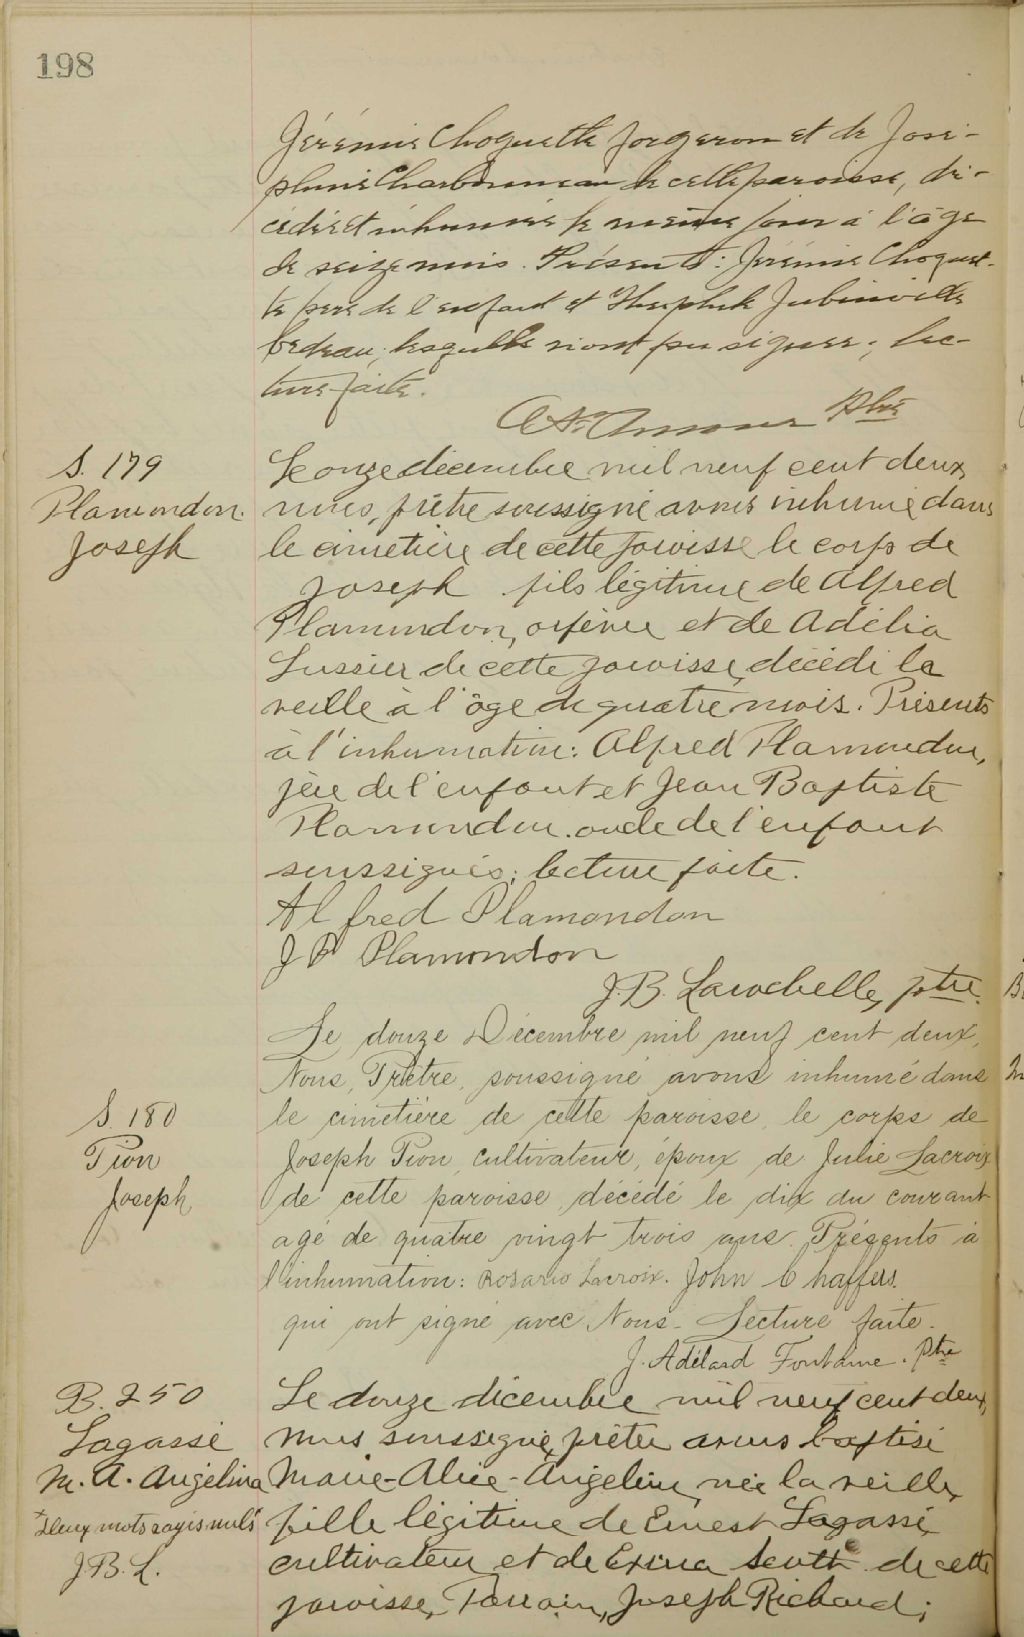 198
Jérémie Choquette forgeron et de José-
phine Charbonneau de cette paroisse, dé-
cédé et inhumé le même jour à l'âge
de seize mois. Présents: Jérémie Choquet-
te père de l'enfant et Théophile Jubinville
bedeau, lesquels n'ont pu signer; lec-
ture faite.
Ptre
S. 179
Plamondon
Joseph
Le onze décembre mil neuf cent deux,
nous, prêtre soussigné avons inhumé dans
le cimetière de cette paroisse le corps de
Joseph fils légitime de Alfred
Plamondon, orfèvre et de Adélia
Lussier de cette paroisse, décédé la
veille à l'âge de quatre mois. Présents
à l'inhumation: Alfred Plamondon,
père de l'enfant et Jean Baptiste
Plamondon oncle de l'enfant
soussignés; lecture faite.
Alfred Plamondon
J B Plamondon
J. B. Larochelle, ptre.
S. 180
Pion
Joseph
Le douze Décembre mil neuf cent deux,
Nous, Prêtre, soussigné avons inhumé dans
le cimetière de cette paroisse, le corps de
Joseph Pion, cultivateur, époux de Julie Lacroix
de cette paroisse, décédé le dix du courant
agé de quatre vingt trois ans. Présents à
l'inhumation: Rosario Lacroix. John Chaffers.
qui ont signé avec Nous. Lecture faite.
J. Adélard Fontaine. Ptre
B. 250
Lagassé
M. A. Angélina
Deux mots rayés nuls
J. B. L.
Le douze décembre mil neuf cent deux,
nous soussigné, prêtre avons baptisé
Marie-Alice-Angélina, née la veille,
fille légitime de Ernest Lagassé,
cultivateur et de Exina Scott de cette
paroisse, Parrain, Joseph Richard;